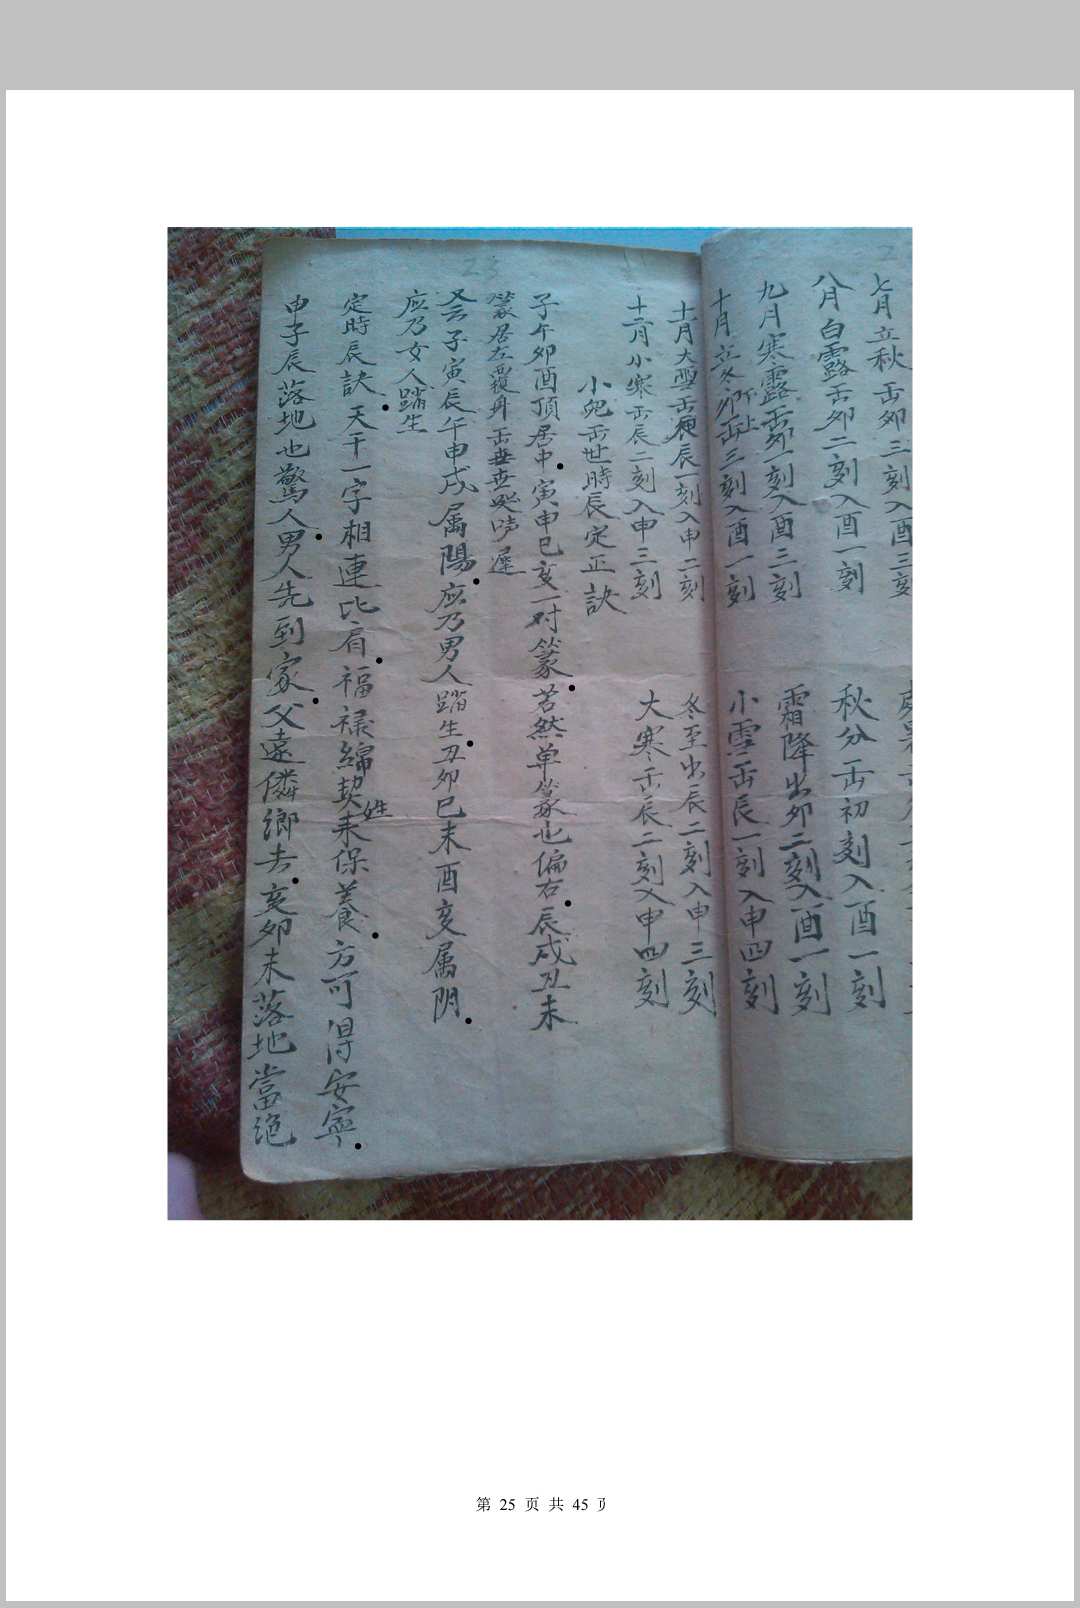 七月立秋出卯三刻入酉三刻
八月白露出卯二刻入酉一刻
秋分出初刻入酉一刻
九月寒露出卯一刻入酉三刻
霜降出卯二刻入酉一刻
十月立冬卯出三刻入酉一刻
小雪出辰一刻入申四刻
十一月大雪出辰一刻入申二刻
冬至出辰二刻入申三刻
十二月小寒出辰二刻入申三刻
大寒出辰二刻入申四刻
小兒出世時辰定正訣
子午卯酉頂居中寅申巳亥一对篆若然单篆也偏右辰戌丑未
篆居左覆身出世哭声遲
又云子寅辰午申戌属陽应乃男人踏生丑卯巳未酉亥属阴
应乃女人踏生
定時辰訣天干一字相連比肩福禄綿契姓来保養方可得安寧
申子辰落地也驚人男人先到家父遠隣鄉去亥卯未落地當絕
23
第 25 页 共 45 页